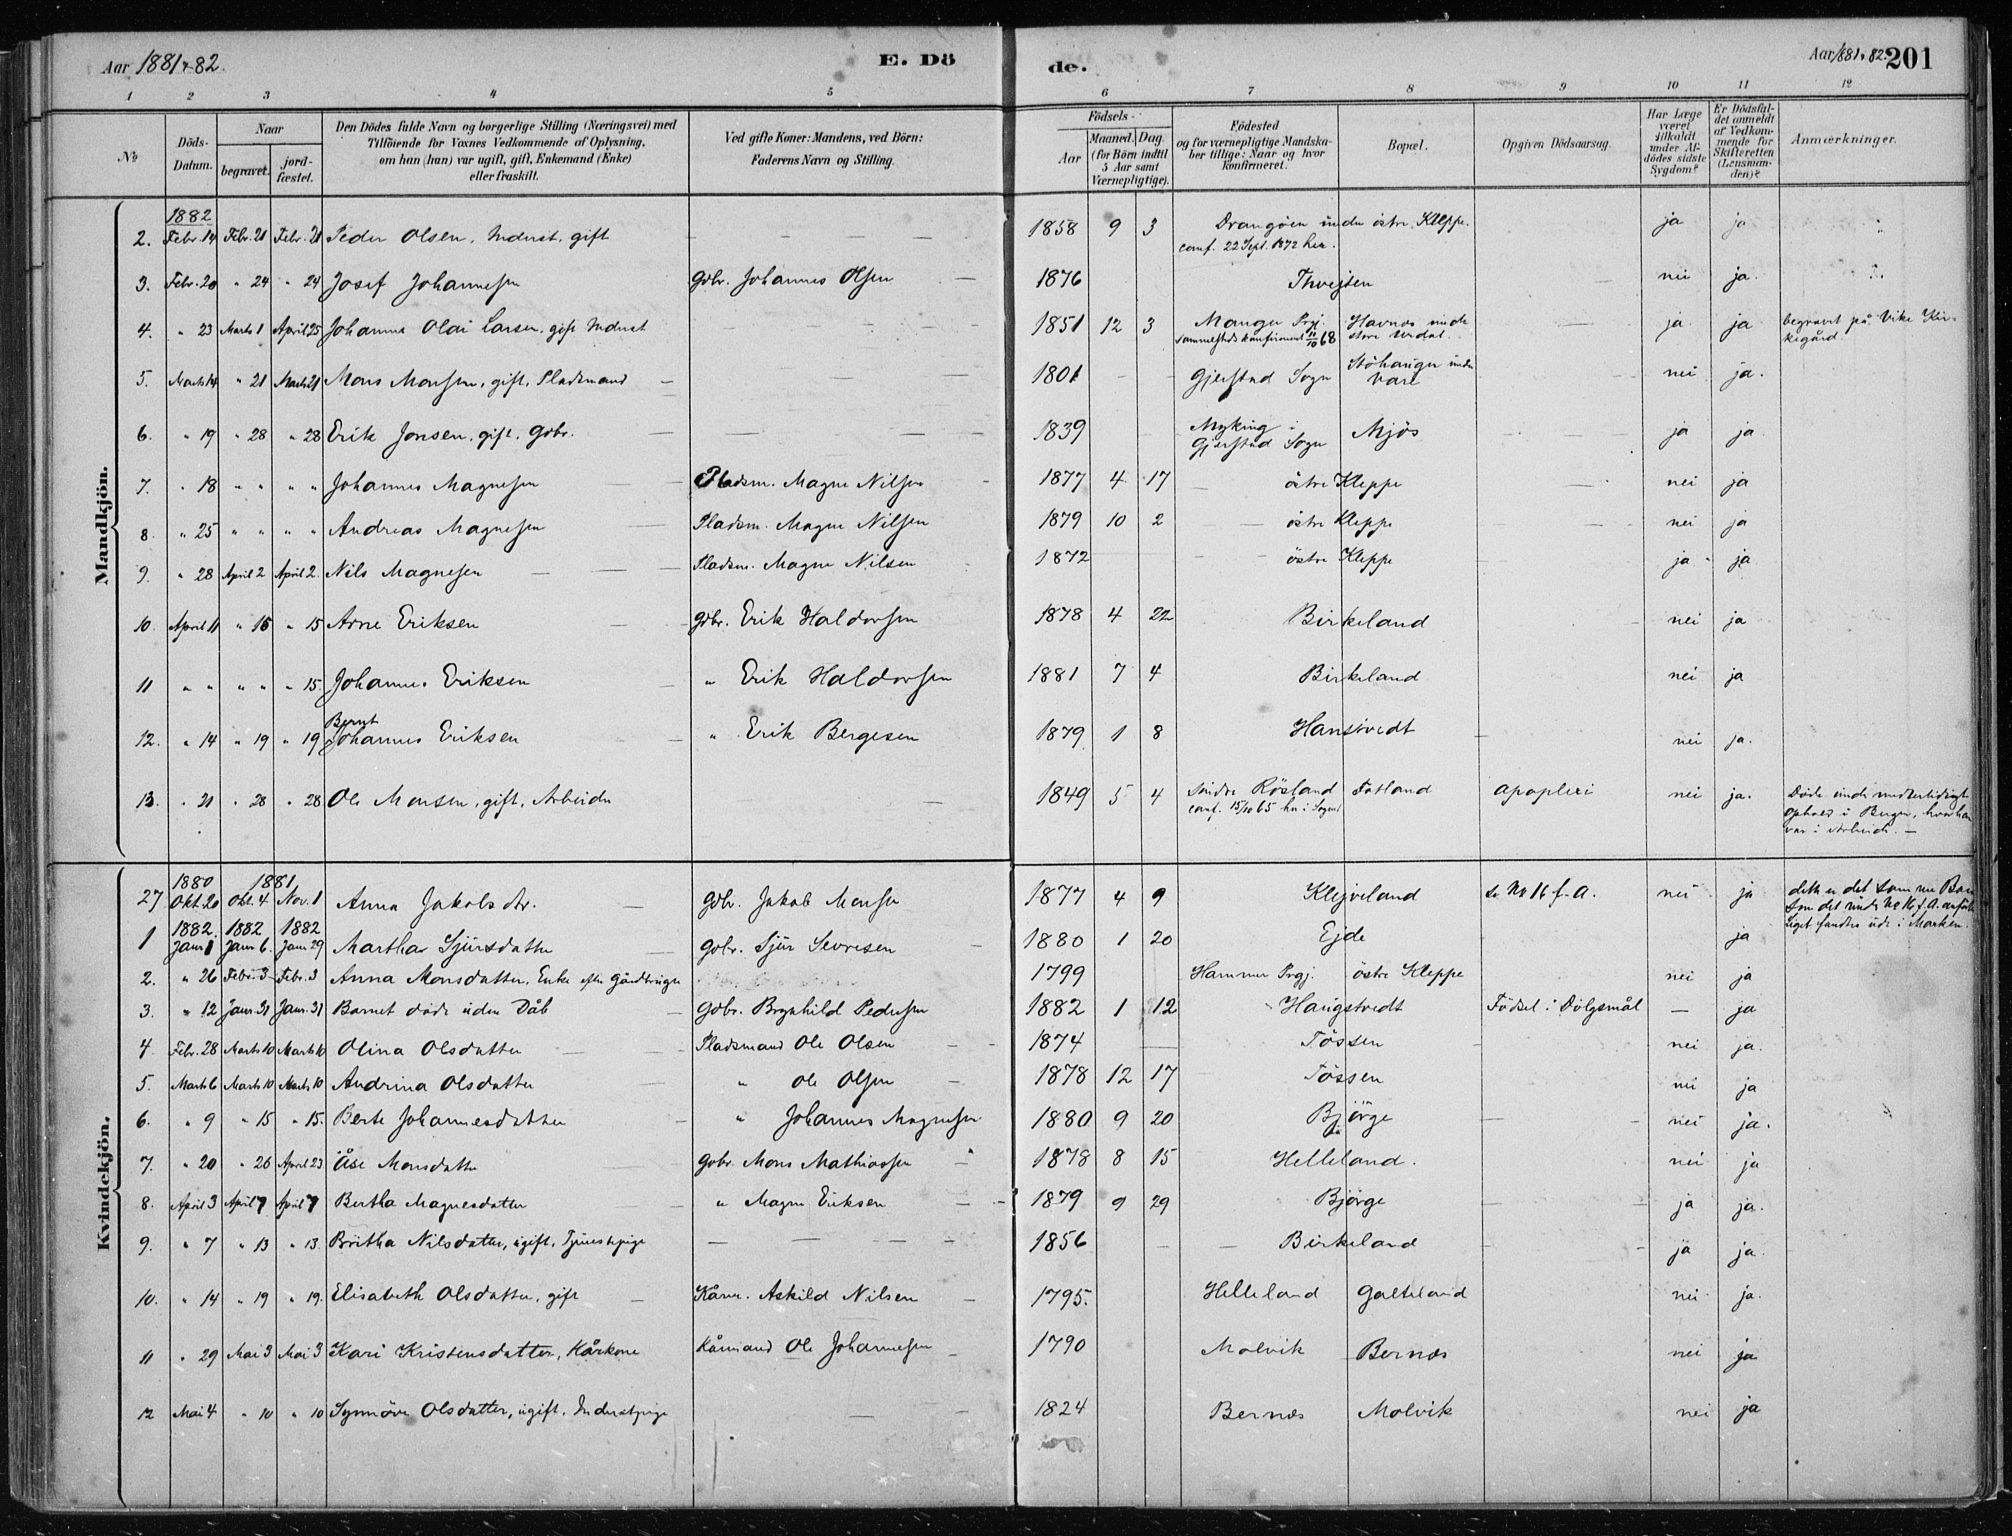 Aar 1881 & 82.
E. Dö
de.
Aar 1881 & 82. 201
1 2 3 4 5 6 7 8 9 10 11 12
No
Döds-Datum.
Naar
begravet.
jord-fæstet.
Den Dödes fulde Navn og borgerlige Stilling (Næringsvei) med
Tilföiende for Voxnes Vedkommende af Oplysning,
om han (hun) var ugift, gift, Enkemand (Enke)
eller fraskilt.
Ved gifte Koner: Mandens, ved Börn:
Faderens Navn og Stilling.
Födsels-
Aar
Maaned. Dag.
(for Börn indtil
5 Aar samt
Værnepligtige).
Födested
og for værnepligtige Mandska-
ber tillige: Naar og hvor
konfirmeret.
Bopæl.
Opgiven Dödsaarsag.
Har Læge
været
tilkaldt
under Af-
dödes sidste
Sygdom?
Er Dödsfal-
det anmeldt
af Vedkom-
mende for
Skifteretten
(Lensman-
den)?
Anmærkninger.
Mandkjön.
1882
2. Febr. 14 Febr. 21 Febr. 21 Peder Olsen, Inderst, gift — — — 1858 9 3 Drangöen under östre Kleppe. ja ja "
conf. 22 Sept. 1872 her.
3. Febr. 20 " 24 " 24 Josef Johannesen Gbr. Johannes Olsen — 1876 Thvejten nei ja.
4. " 23 Marts 1 April 25 Johannes Olai Larsen, gift Inderst 1851 12 3 Manger Prgj. Havnes under ja ja begravet på Vike Kir-
sammesteds konfirmeret 11/10 68 store Urdal. kegård.
5. Marts 14 " 21 Marts 21 Mons Monsen, gift, Pladsmand — 1801 — — Gjerstad Sogn Stöhaugen under nei ja.
Vare
6. " 19 " 28 " 28 Erik Jonsen, gift, Gbr. — 1839 Myking i Mjös ja ja
Gjerstad Sogn
7. " 18 " " " " Johannes Magnesen Pladsm. Magne Nilsen 1877 4 17 östre Kleppe nei ja
8. " 25 " " " " Andreas Magnesen Pladsm. Magne Nilsen 1879 10 2 östre Kleppe nei ja
9. " 28 April 2 April 2 Nils Magnesen Pladsm. Magne Nilsen 1872 östre Kleppe ja ja
10. April 11 " 15 " 15 Arne Eriksen Gbr. Erik Haldorsen 1878 4 22 Birkeland nei ja
11 " " " " " 15. Johannes Eriksen " Erik Haldorsen 1881 7 4 Birkeland nei ja
Bernt
12. " 14 " 19 " 19 Johannes Eriksen " Erik Bergesen 1879 1 8 Hanstvedt nei ja.
13. " 21 " 28 " 28 Ole Monsen, gift, Arbeider — 1849 5 4 Indre Rösland Fotland apoplexi nei ja. Döde under midlertidigt
conf. 15/10 65 her i Sognet ophold i Bergen, hvor han
var i Arbeide. —
Kvindekjön.
1880 1881
27 Okt. 20 Okt. 4 Nov. 1 Anna Jakobsdtr. — Gbr. Jakob Monsen 1877 4 9 Klejveland se No 16 f. A. nei ja dette er det samme Barn
som det under No 16 f. A. anförte
1882. 1882 1882 Liget fandtes ude i Marken.
1 Janr 1 Janr 6. Janr 29 Martha Sjursdatter Gbr. Sjur Sevresen 1880 1 20 Ejde ja
2. " 26 Febr. 3 Febr. 3 Anna Monsdatter, Enke efter Gårdbruger 1799 Hammer Prgj. östre Kleppe nei ja
3. " 12 Janr. 31 Janr. 31 Barnet döde uden Dåb — Gbr. Brynhild Pedersen 1882 1 12 Haugstvedt Födsel i Dölgsmål — ja
4 Febr. 28 Marts 10 Marts 10 Olina Olsdatter — Pladsmand Ole Olsen — 1874 Tössen nei ja.
5. Marts 6 Marts 10 Marts 10 Andrina Olsdatter " Ole Olsen — 1878 12 17 Tössen nei ja
6. " 9 " 15 " 15. Berte Johannesdatter " Johannes Magnesen 1880 9 20 Björge nei ja.
7. " 20 " 26 April 23 Åse Monsdatter Gbr. Mons Mathiassen 1878 8 15 Helleland. nei ja
8. April 3 April 7 April 7 Bertha Magnesdatter " Magne Eriksen — 1879 9 29 Björge ja ja.
9. " 7 " 13 " 13 Britha Nilsdatter, ugift, Tjenestepige — 1856 — — Birkeland ja ja.
10. " 14 " 19 " 19. Elisabeth Olsdatter, gift — Kårm. Askild Nilsen — 1795. Helleland Galteland nei ja.
11 " 29 Mai 3 Mai 3 Kari Kristensdatter, Kårkone Kårmand Ole Johannesen 1790 Molvik Bernæs nei ja
12 Mai 4 " 10 " 10 Synnöve Olsdatter, ugift, Inderstpige — 1824 Bernæs Molvik nei ja